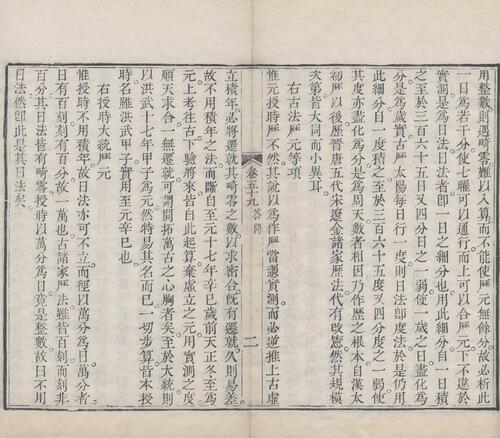 用整數則遇畸零難以入算而不能使歷元無餘分故必析此
一日為若干分使七曜可以通行而上可以合歷元下不違於
實測是為日法日法者卽一日之細分也用此細分自一日積
之至於三百六十五日又四分日之一弱使一歲之日盡化為
分是為歲實古歷太陽每日行一度則日法卽度法於是仍用
此細分自一度積之至於三百六十五度又四分度之一弱使
其度亦盡化為分是為周天數者相因乃作歷之根本自漢太
初歷以後歷晉唐五代宋遼金諸家歷法代有改憲然其規模
次第皆大同而小異耳
右古法歷元等項
惟元授時歷不然其說以為作歷當憑實測而必逆推上古虛
卷五十九 答問 二
立積年必將遷就其畸零之數以求密合旣有遷就久則易差
故不用積年之法而斷自至元十七年辛巳歲前天正冬至為
元上考往古下驗將來皆自此起算棄虛立之元用實測之度
順天求合一無遷就可謂開拓萬古之心胸者矣至於大統則
以洪武十七年甲子為元然特易其名而已一切步算皆本授
時名雖洪武甲子實用至元辛巳也
右授時大統歷元
惟授時不用積年故日法亦可不立而徑以萬分為日萬分者
日有百刻刻有百分故一萬也古諸家歷法雖皆百刻而刻非
百分其日法皆有畸零授時以萬分為日竟是整數故曰不用
日法然卽此是其日法矣